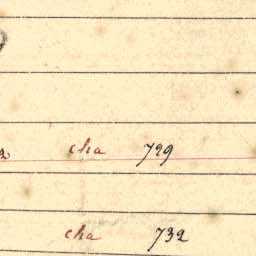 cha 729
cha 732